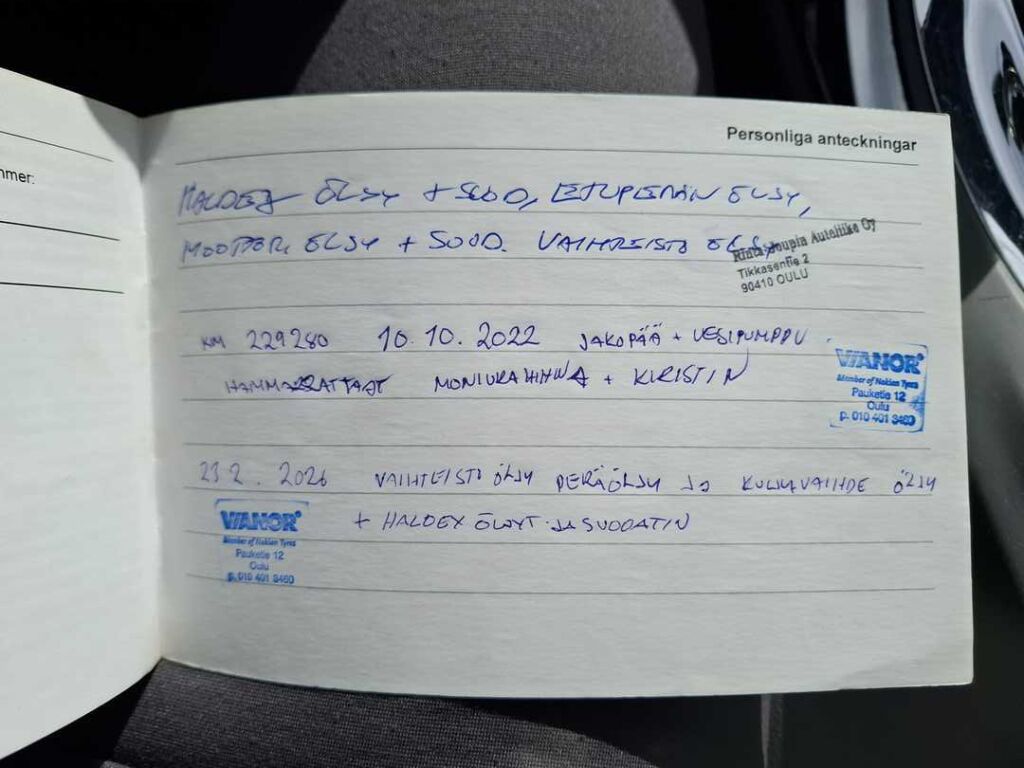 mmer:
Personliga anteckningar
HALDEX ÖLJY + SUOD, ETUPERÄN ÖLJY,
MOOTTORI ÖLJY + SUOD. VAIHTEISTO ÖLJY
Rinta-Joupin Autoliike Oy
Tikkasentie 2
90410 OULU
KM 229280 10.10.2022 JAKOPÄÄ + VESIPUMPPU
HAMMASRATTAAT MONIURAHIHNA + KIRISTIN
VIANOR
Member of Nokian Tyres
Pauketie 12
Oulu
p. 010 401 3460
23 2. 2026 VAIHTEISTO ÖLJY PERÄÖLJY JA KULMAVAIHDE ÖLJY
+ HALDEX ÖLJYT JA SUODATIN
VIANOR
Member of Nokian Tyres
Pauketie 12
Oulu
p. 010 401 3460